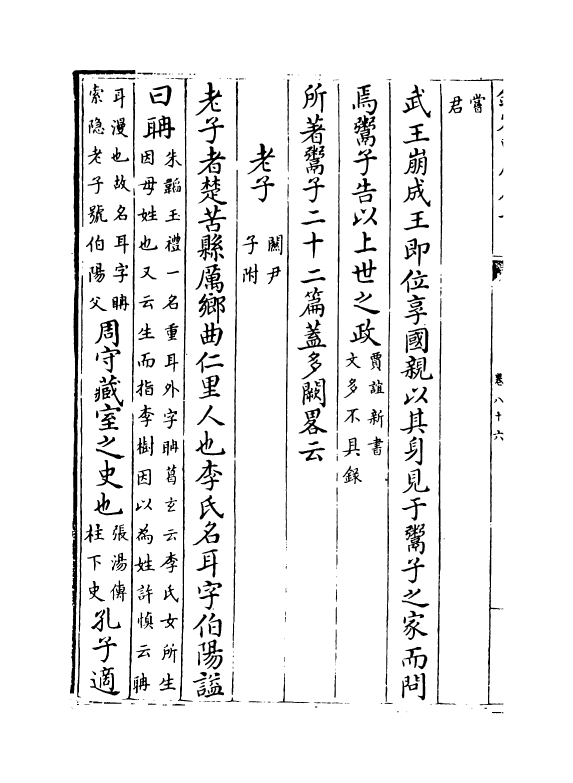 卷八十六
嘗
君
武王崩成王即位享國親以其身見于鬻子之家而問
焉鬻子告以上世之政
賈誼新書
文多不具録
所著鬻子二十二篇蓋多闕畧云
老子
關尹
子附
老子者楚苦縣厲鄉曲仁里人也李氏名耳字伯陽謚
曰耼
朱韜玉禮一名重耳外字耼葛玄云李氏女所生
因母姓也又云生而指李樹因以為姓許慎云耼
耳漫也故名耳字耼
索隐老子號伯陽父
周守藏室之史也
張湯傳
柱下史
孔子適